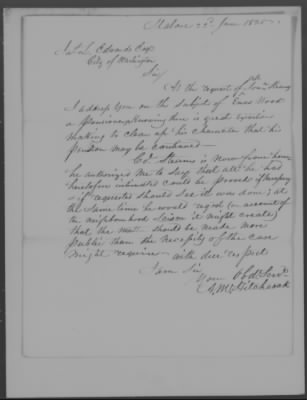 Malone 22d Jan 1835
J. L. Edwards Esqr
City of Washington
Sir
At the request of
I address you on the subject of Enos Wood
a Pensioner, knowing there is great exertion
making to clear up his character that his
pension may be continued —
Col Stearns is now from home
he authorized me to say that all he has
heretofore intimated could be proved if necessary
& if requested should see it was done; at
the same time he would regret (on account of
the neighbourhood it might create)
that the matter should be made more
public than the necessity of the case
might require — with due respect
I am Sir
Your Obdt Servt
Hitchcock